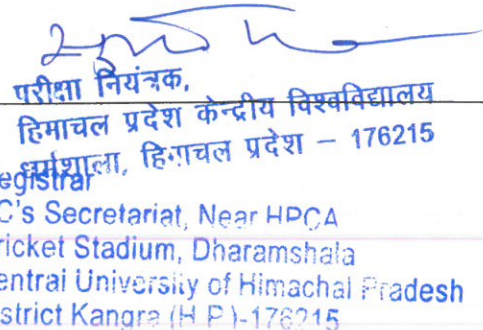 परीक्षा नियंत्रक,
हिमाचल प्रदेश केन्द्रीय विश्वविद्यालय
धर्मशाला, हिमाचल प्रदेश – 176215
egistrar
C's Secretariat, Near HPCA
ricket Stadium, Dharamshala
entral University of Himachal Pradesh
istrict Kangra (H.P.)-176215